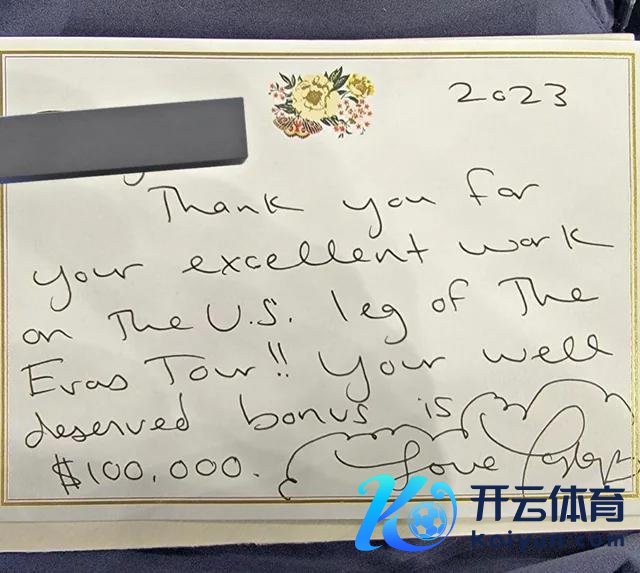 2023
Thank you for
your excellent work
on The U.S. leg of The
Eras Tour!! Your well
deserved bonus is
$100,000.
Love
开云体育
kaiyun.com